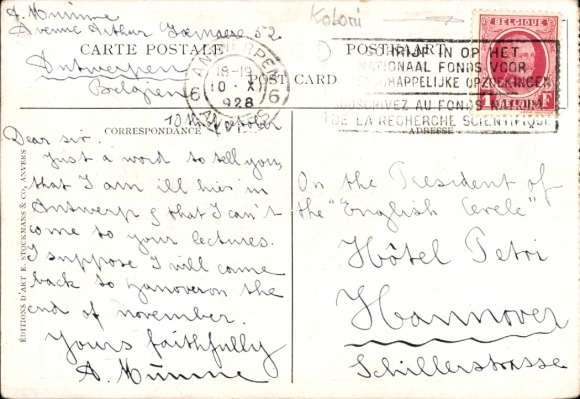 A. Mümme
Avenue Arthur Goemaere 52
Antwerpen
Belgien
Kolonı
CARTE POSTALE
POSTKAART
POST CARD
ANTWERPEN
18-19
10 · X
1928
6 6
ANVERS
BELGIQUE
SCHRIJF IN OP HET
NATIONAAL FONDS VOOR
WETENSCHAPPELIJKE OPZOEKINGEN
SOUSCRIVEZ AU FONDS NATIONAL
DE LA RECHERCHE SCIENTIFIQUE
CORRESPONDANCE
ADRESSE
10th october
Dear sir.
Just a word to tell you,
that I am ill hier in
Antwerp & that I can't
come to your lectures.
I suppose I will come
back to Hanover on the
end of november.
Yours faithfully
A. Mümme
On the President of
the "English Cercle"
Hôtel Petri
Hannover
Schillerstrasse
ÉDITIONS D'ART E. STOCKMANS & CO, ANVERS